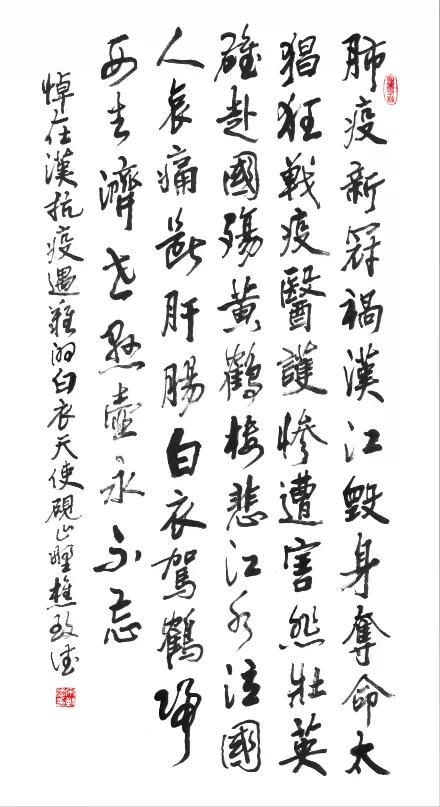 肺疫新冠禍漢江毀身奪命太
猖狂戰疫醫護慘遭害怨壯英
雄赴國殤黃鶴樓悲江水泣國
人哀痛斷肝腸白衣駕鶴歸
西去濟世懸壺永不忘
悼在漢抗疫遇難的白衣天使硯山野樵